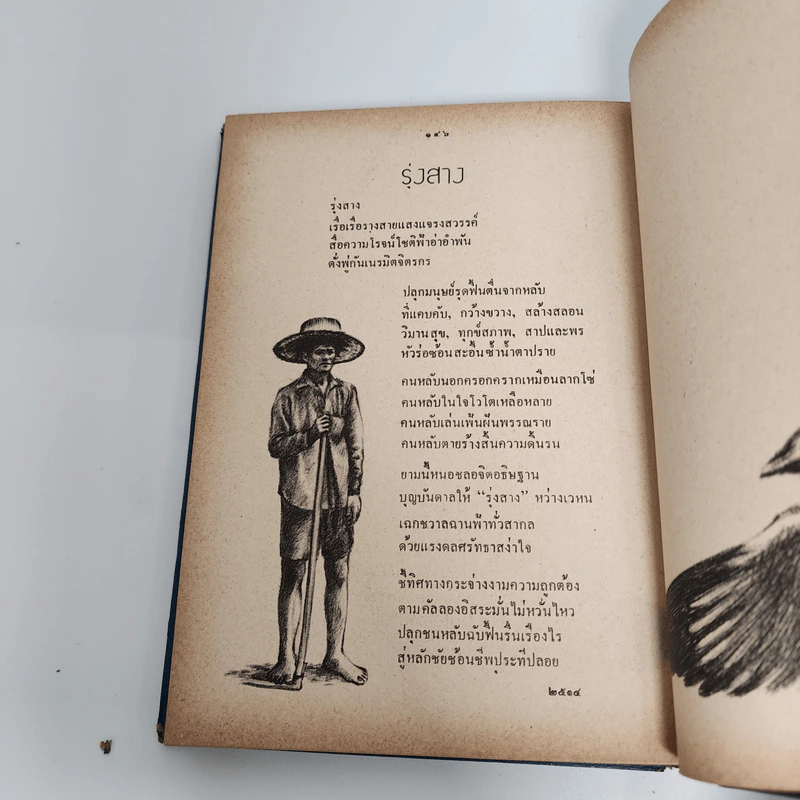 ๑๙๖
รุ่งสาง
รุ่งสาง
เรื่อเรื่อรางสายแสงแจรงสวรรค์
สื่อความโรจน์โชติฟ้าอ่าอำพัน
ดั่งพู่กันเนรมิตจิตรกร
ปลุกมนุษย์รุดฟื้นตื่นจากหลับ
ที่แคบคับ, กว้างขวาง, สล้างสลอน
วิมานสุข, ทุกข์สภาพ, สาปและพร
หัวร่อซ้อนสะอื้นซ้ำน้ำตาปราย
คนหลับนอกครอกครากเหมือนลากโซ่
คนหลับในใจโวโตเหลือหลาย
คนหลับเล่นเพ้นผันพรรณราย
คนหลับตายร้างสิ้นความดิ้นรน
ยามนี้หนอชลอจิตอธิษฐาน
บุญบันดาลให้ “รุ่งสาง” หว่างเวหน
เฉกชวาลฉานฟ้าทั่วสากล
ด้วยแรงดลศรัทธาสง่าใจ
ชี้ทิศทางกระจ่างงามความถูกต้อง
ตามคัลลองอิสระมั่นไม่หวั่นไหว
ปลุกชนหลับฉับฟื้นรื่นเรืองไร
สู่หลักชัยช้อนชีพประทีปลอย
๒๕๑๔